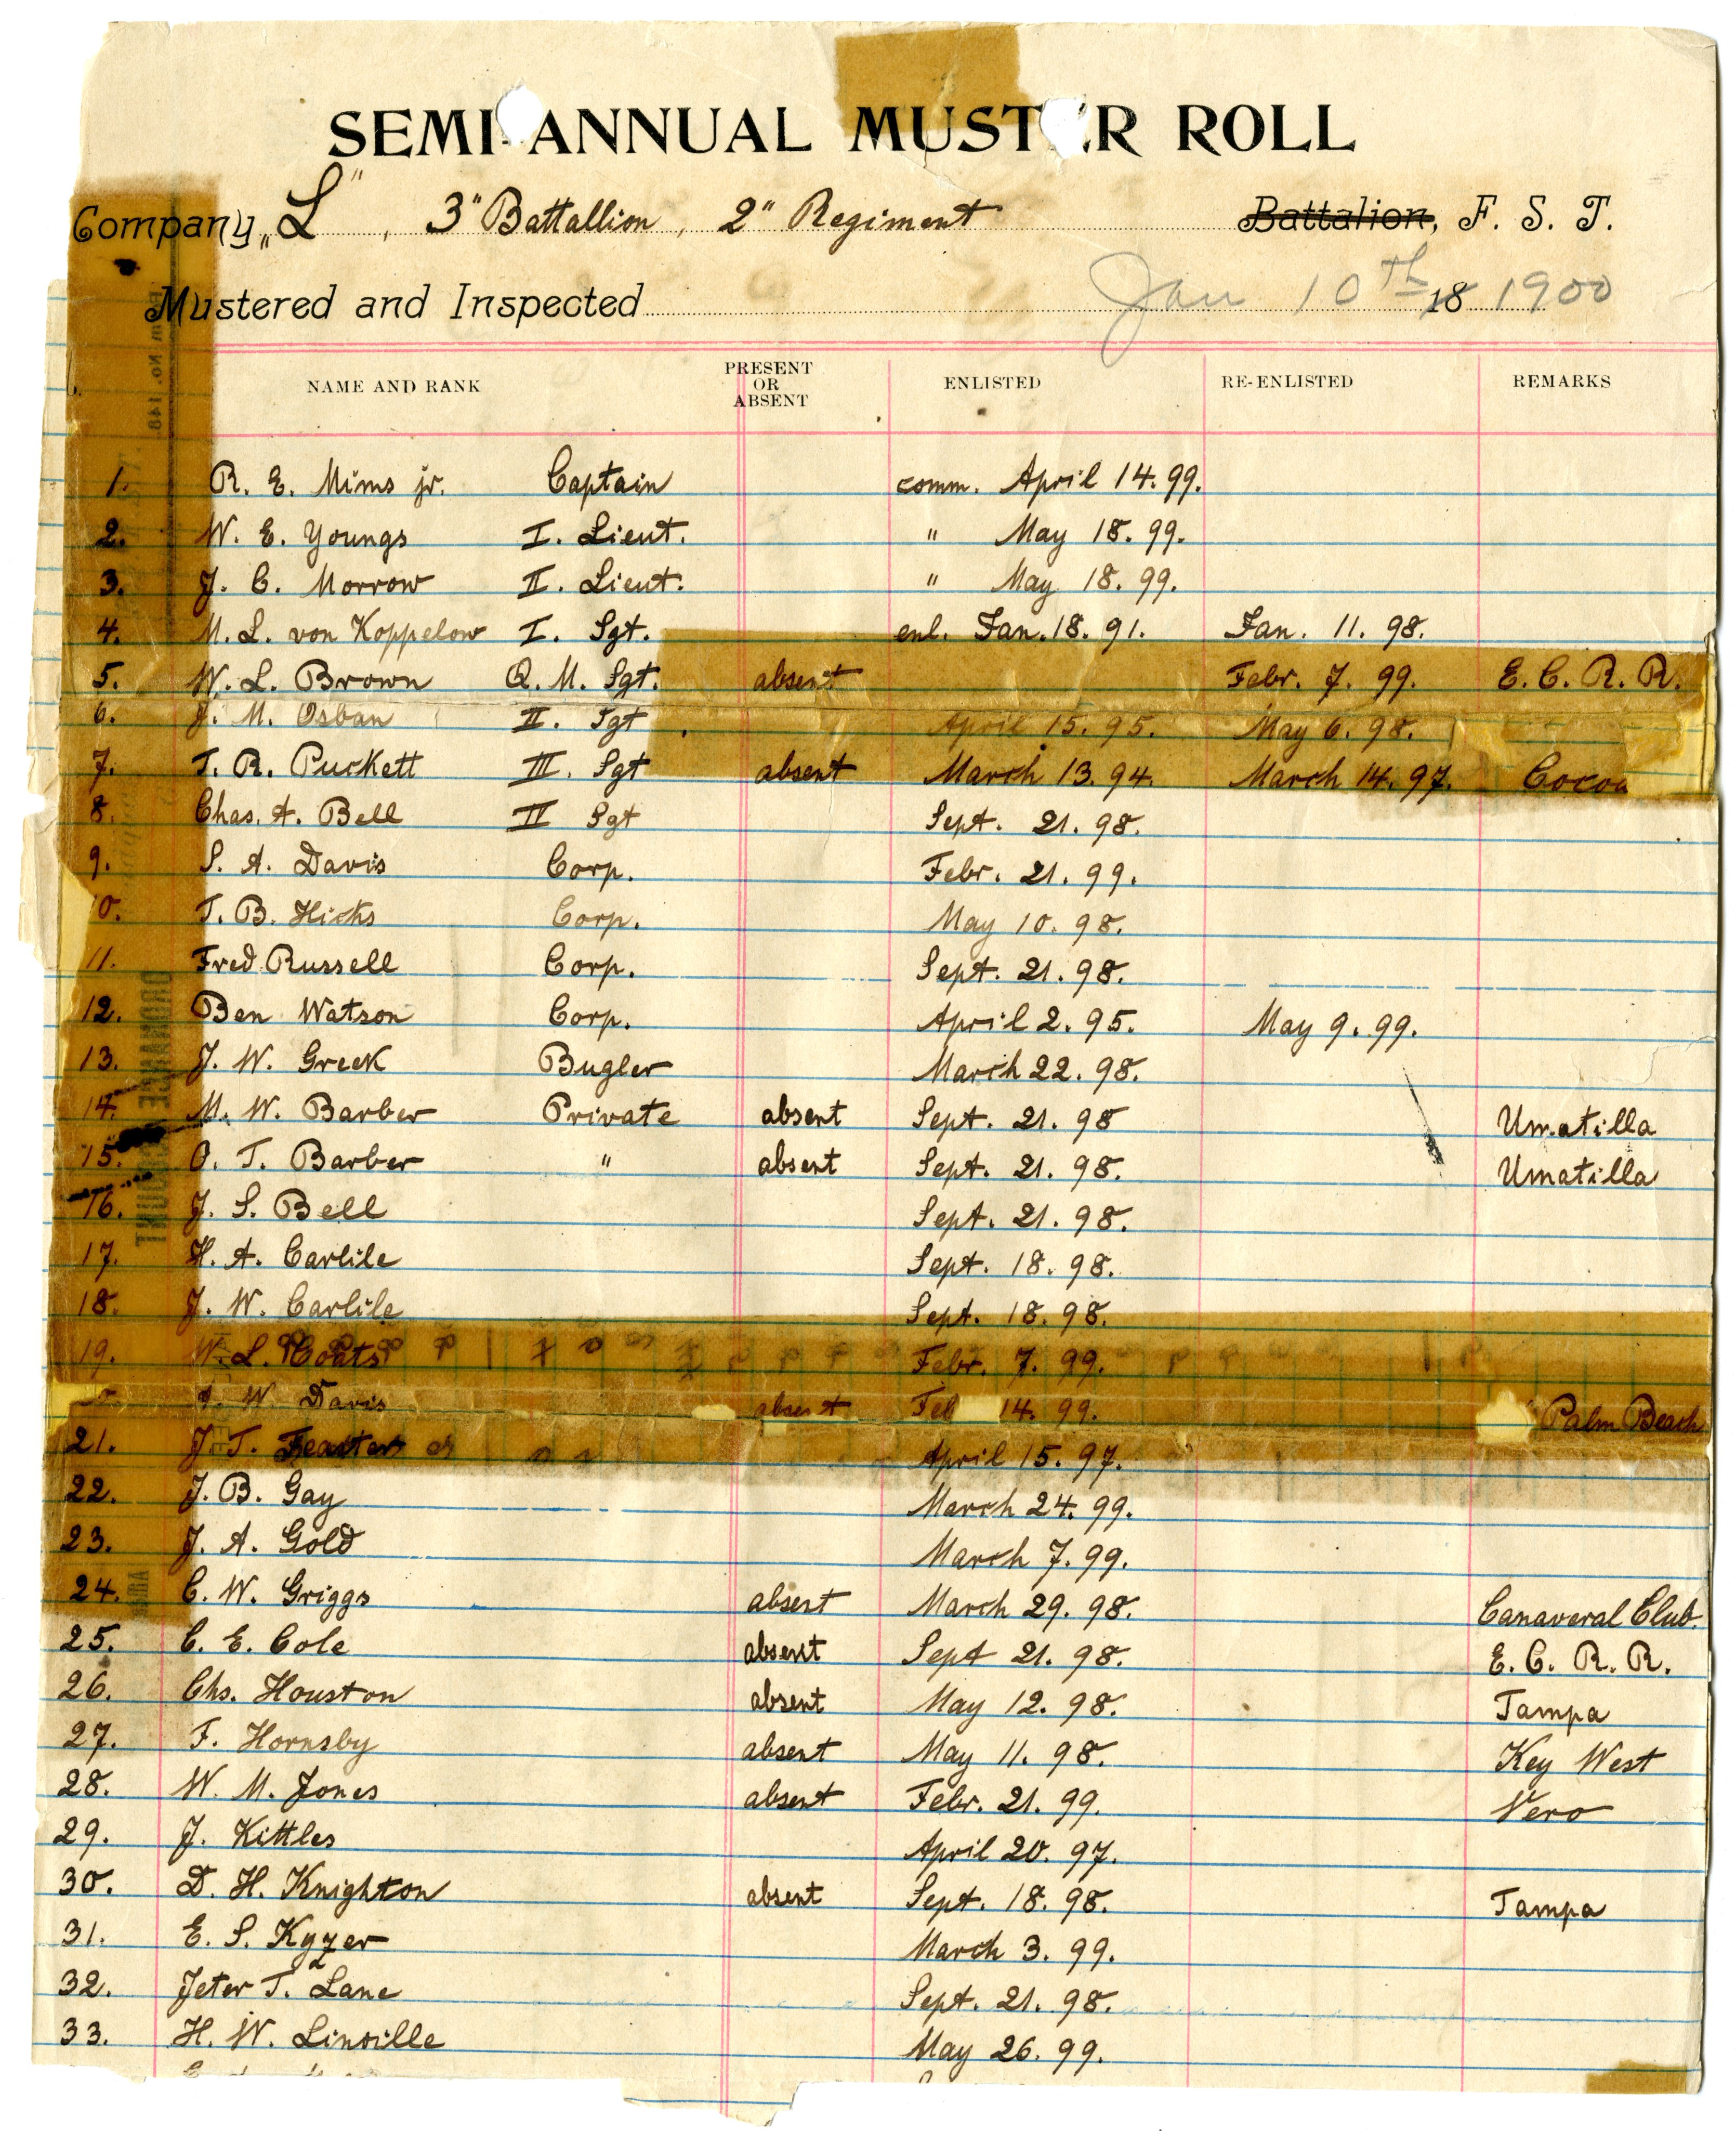 SEMI-ANNUAL MUSTER ROLL
Company „L”, 3" Battallion, 2" Regiment Battalion, F. S. T.
Mustered and Inspected Jan 10th 18 1900
NAME AND RANK PRESENT OR ABSENT ENLISTED RE-ENLISTED REMARKS
1. R. E. Mims jr. Captain comm. April 14. 99.
2. W. E. Youngs I. Lieut. " May 18. 99.
3. J. C. Morrow II. Lieut. " May 18. 99.
4. M. L. von Koppelow I. Sgt. enl. Jan. 18. 91. Jan. 11. 98.
5. W. L. Brown Q. M. Sgt. absent Febr. 7. 99. E. C. R. R.
6. J. M. Osban II. Sgt. April 15. 95. May 6. 98.
7. T. R. Puckett III. Sgt absent March 13. 94. March 14. 97. Cocoa
8. Chas. A. Bell II Sgt Sept. 21. 98.
9. S. A. Davis Corp. Febr. 21. 99.
10. T. B. Hicks Corp. May 10. 98.
11. Fred Russell Corp. Sept. 21. 98.
12. Ben Watson Corp. April 2. 95. May 9. 99.
13. J. W. Greek Bugler March 22. 98.
14. M. W. Barber Private absent Sept. 21. 98 Umatilla
15. O. T. Barber " absent Sept. 21. 98. Umatilla
16. J. S. Bell Sept. 21. 98.
17. H. A. Carlile Sept. 18. 98.
18. J. W. Carlile Sept. 18. 98.
19. W. L. Coats Febr. 7. 99.
W. Davis absent Feb 14. 99. Palm Beach
21. J. T. Feaster April 15. 97.
22. J. B. Gay March 24. 99.
23. J. A. Gold March 7. 99.
24. C. W. Griggs absent March 29. 98. Canaveral Club.
25. C. E. Cole absent Sept 21. 98. E. C. R. R.
26. Chs. Houston absent May 12. 98. Tampa
27. F. Hornsby absent May 11. 98. Key West
28. W. M. Jones absent Febr. 21. 99. Vero
29. J. Kittles April 20. 97.
30. D. H. Knighton absent Sept. 18. 98. Tampa
31. E. S. Kyzer March 3. 99.
32. Jeter T. Lane Sept. 21. 98.
33. H. W. Linville May 26. 99.